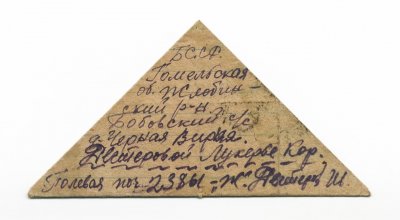 БССР
Гомельская
об. Жлобин
ский р-н
Бобовский с/с
д. Черная Вирня.
Нестеровой Лукерье Кор.
Полевая поч. 23861-"Ж" Нестеров И.